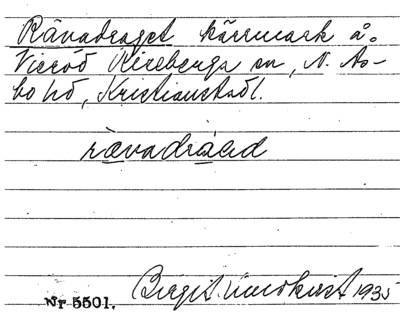 Rävadraget kärrmark å.
Viaröd Riseberga sn, N. Ås-
bo hd, Kristianstadl.
rävadráed
Birgit Lindkvist 1935
Nr 5501.